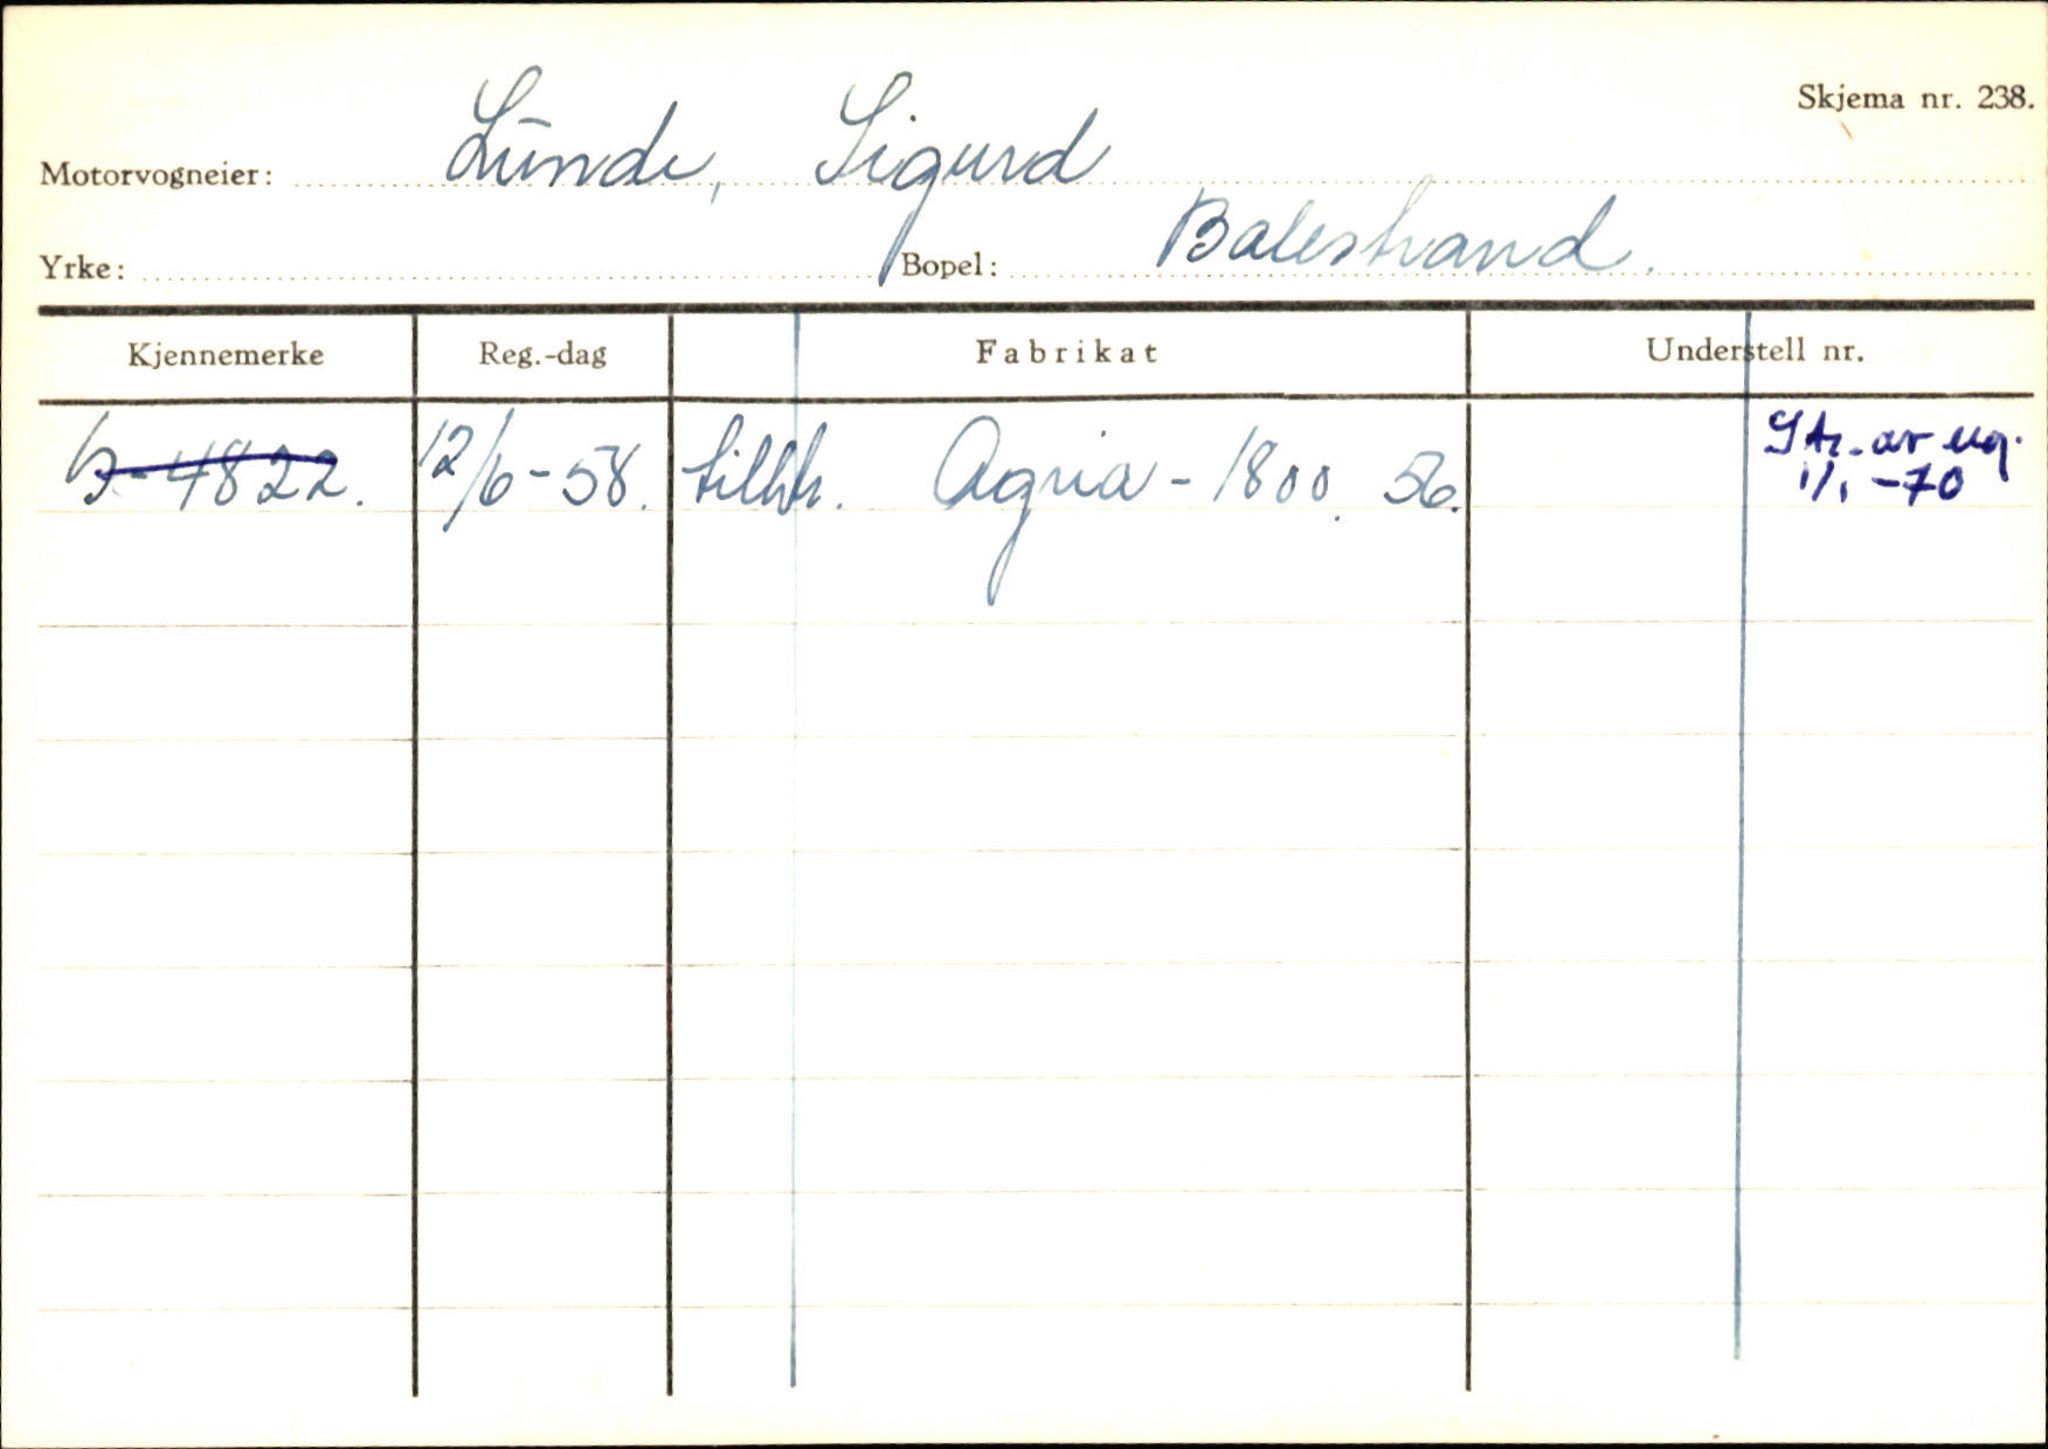 Skjema nr. 238.
Motorvogneier: Lunde, Sigurd
Yrke: Bopel: Balestrand.
Kjennemerke Reg.-dag Fabrikat Understell nr.
4822. 12/6-58. Agria - 1800. 56. Str. av reg.
1/1 -70